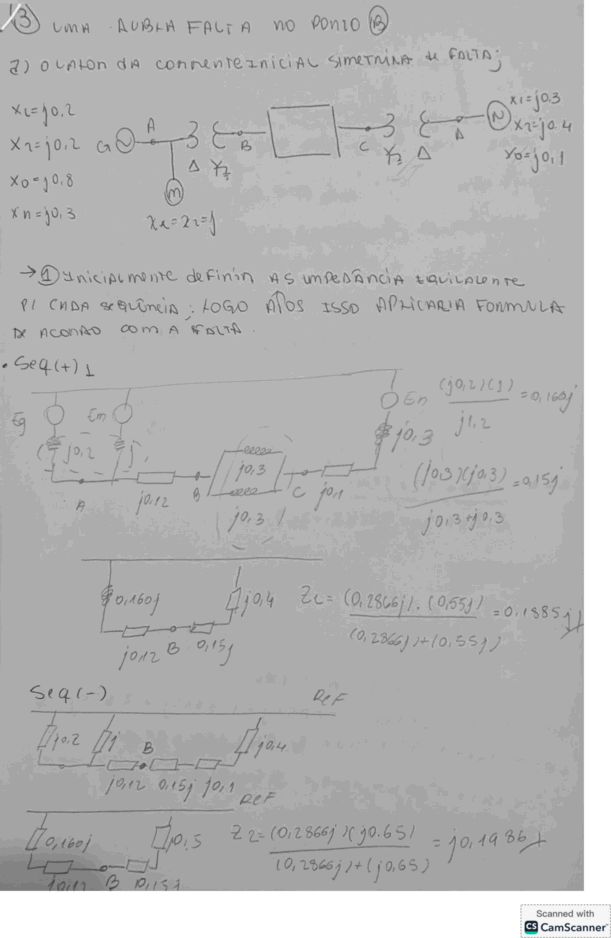 ③ UMA DUBLA FALTA NO PONTO Ⓑ
a) O VALOR DA CORRENTE INICIAL SIMETRICA de FALTA;
X1=j0,2
X2=j0,2
X0=j0,8
Xn=j0,3
G A Δ Y B C Y Δ D N
X1=j0.3
X2=j0.4
X0=j0,1
m
X1=X2=j
→① Inicialmente definir AS IMPEDÂNCIA EQUIVALENTE
P/ CADA SEQUÊNCIA; LOGO APÓS ISSO APLICARIA FORMULA
DE ACORDO COM A FALTA.
• Seq(+) 1
Eg Em En (j0,2)(j) = 0,160j
j1,2
j0,2 j j0,3
A j0,12 B j0.3 C j0,1
j0.3
(j0,3)(j0,3) = 0,15j
j0,3+j0,3
0,160j j0,4
j0,12 B 0,15j
Z1 = (0,2866j).(0,55j) = 0,1885j
(0,2866j)+(0,55j)
Seq(-) Ref
j0.2 j B j0,4
j0,12 0,15j j0,1
Ref
0,160j j0,5
j0,12 B 0,15j
Z2=(0,2866j)(j0.65) = j0,1986
(0,2866j)+(j0,65)
Scanned with
CS CamScanner